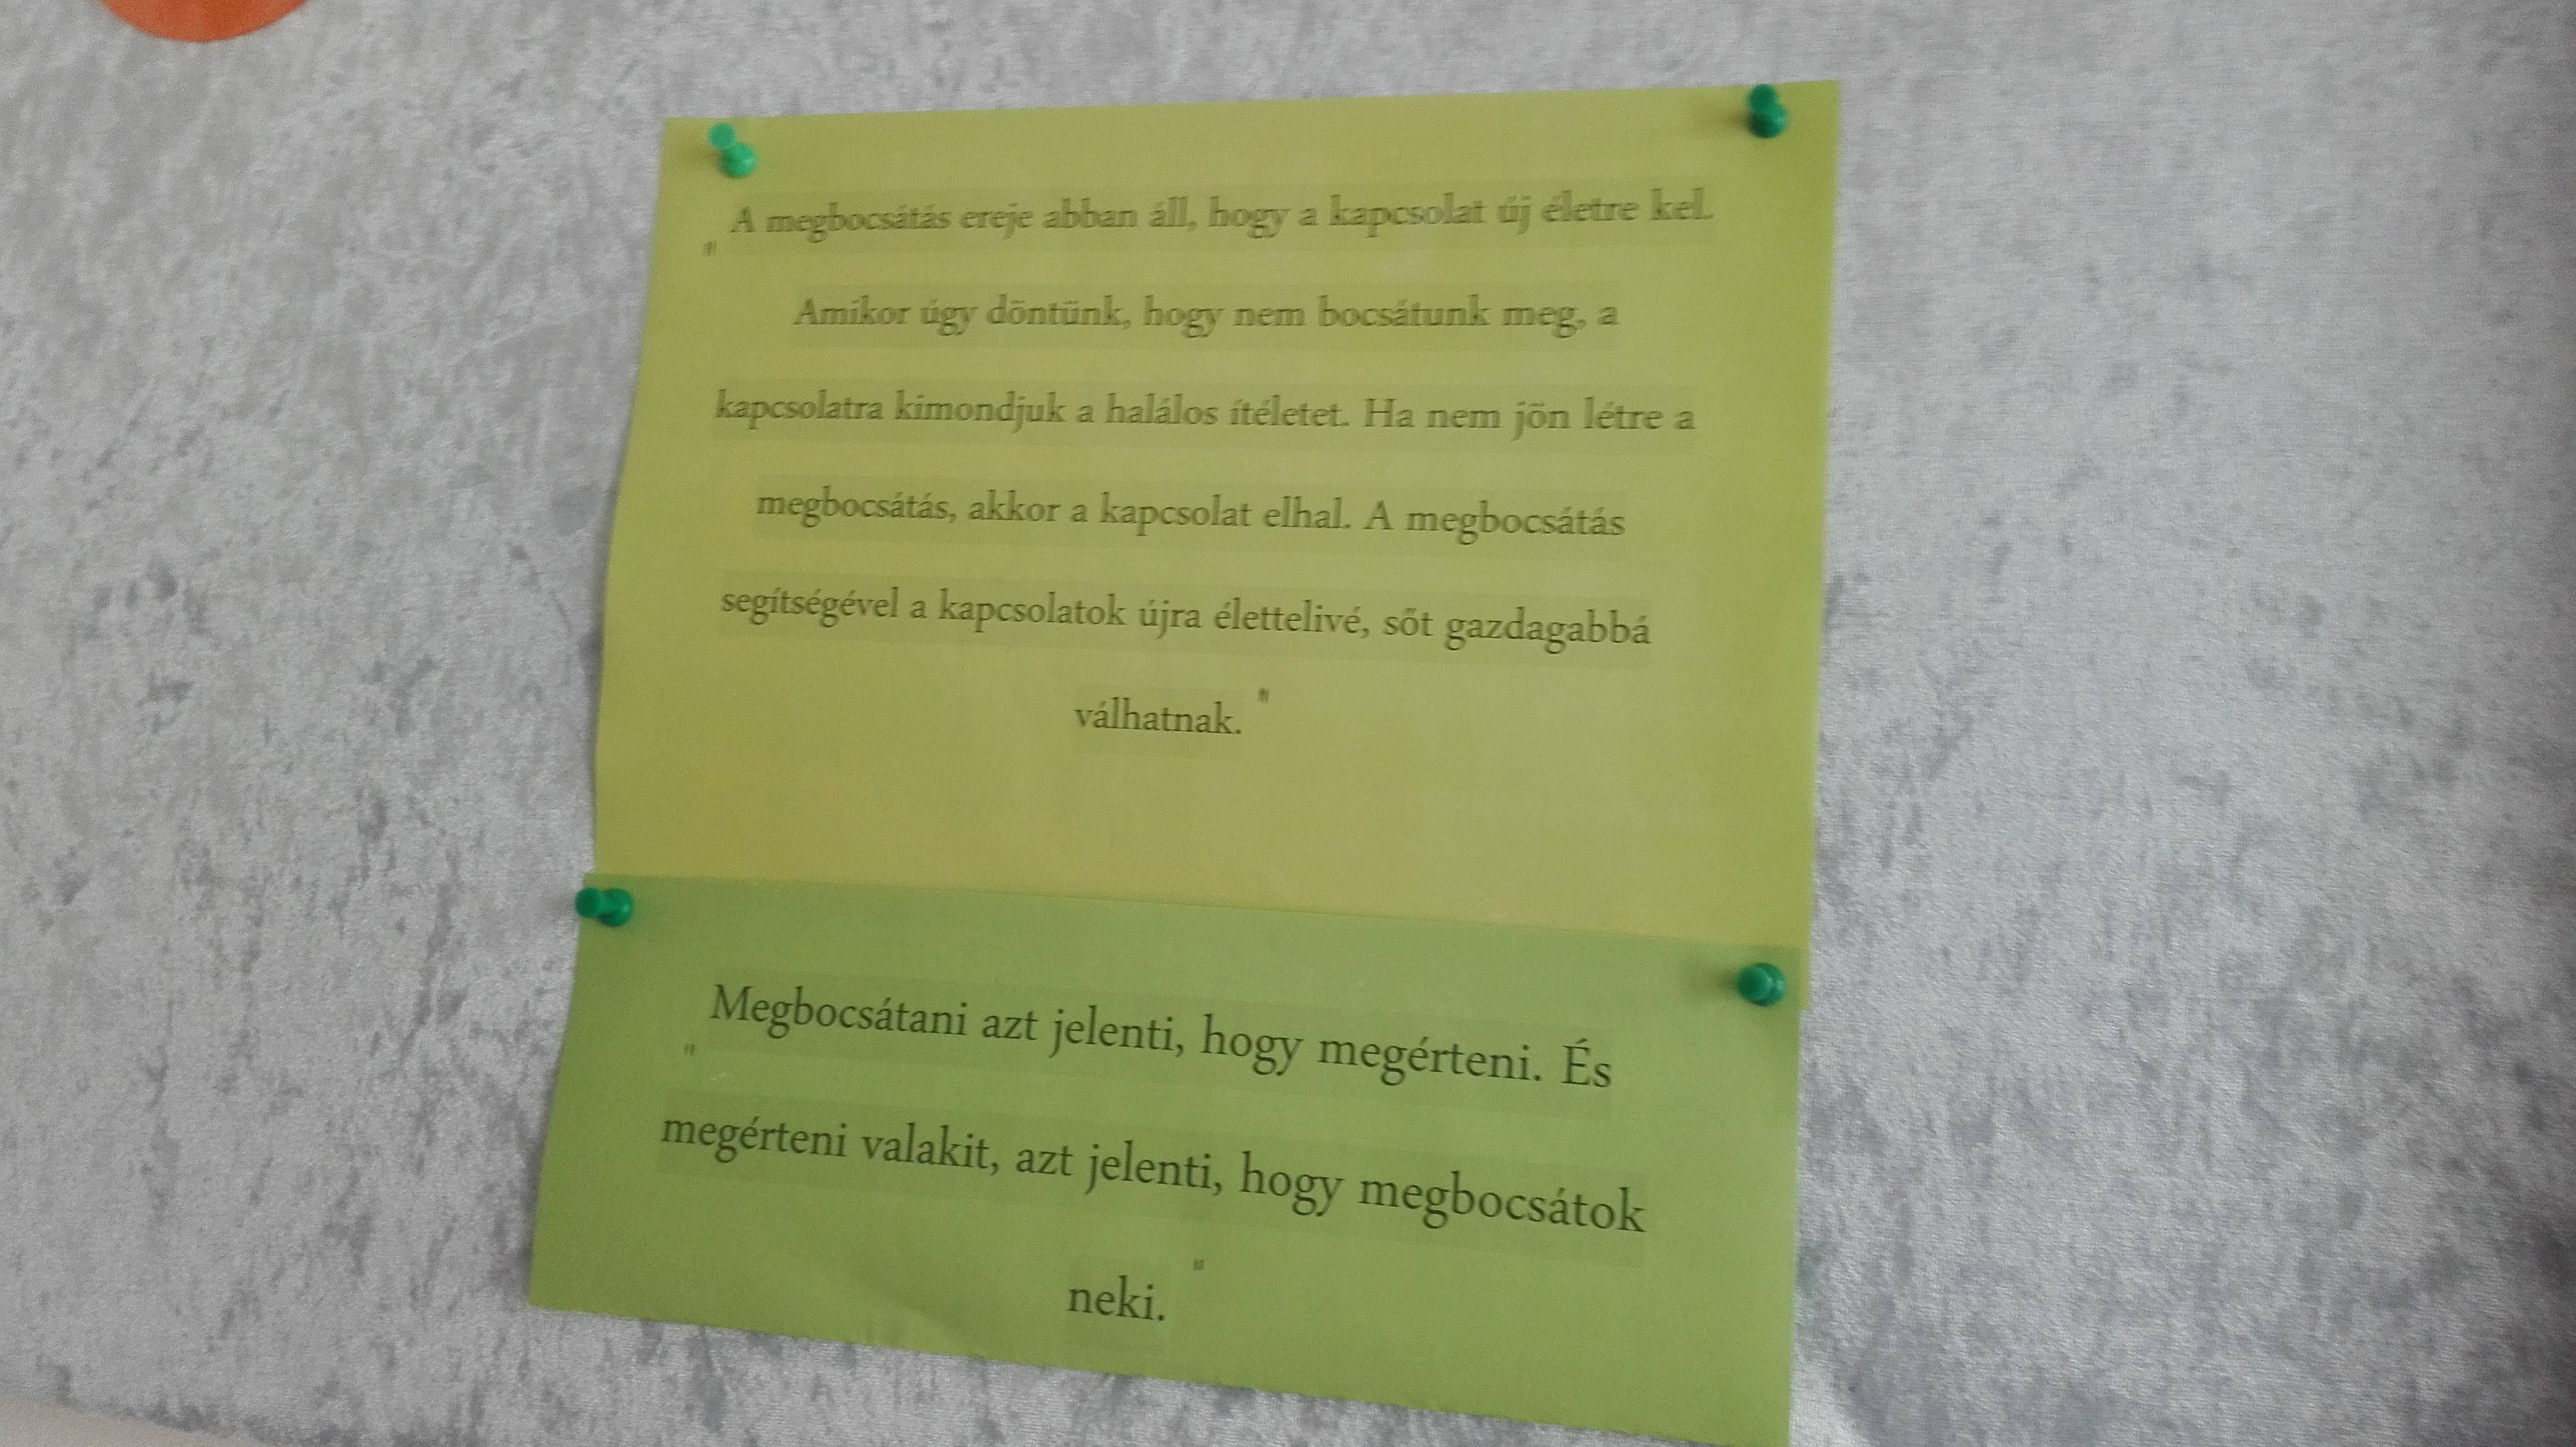 „ A megbocsátás ereje abban áll, hogy a kapcsolat új életre kel.
Amikor úgy döntünk, hogy nem bocsátunk meg, a
kapcsolatra kimondjuk a halálos ítéletet. Ha nem jön létre a
megbocsátás, akkor a kapcsolat elhal. A megbocsátás
segítségével a kapcsolatok újra élettelivé, sőt gazdagabbá
válhatnak. "
„ Megbocsátani azt jelenti, hogy megérteni. És
megérteni valakit, azt jelenti, hogy megbocsátok
neki. "